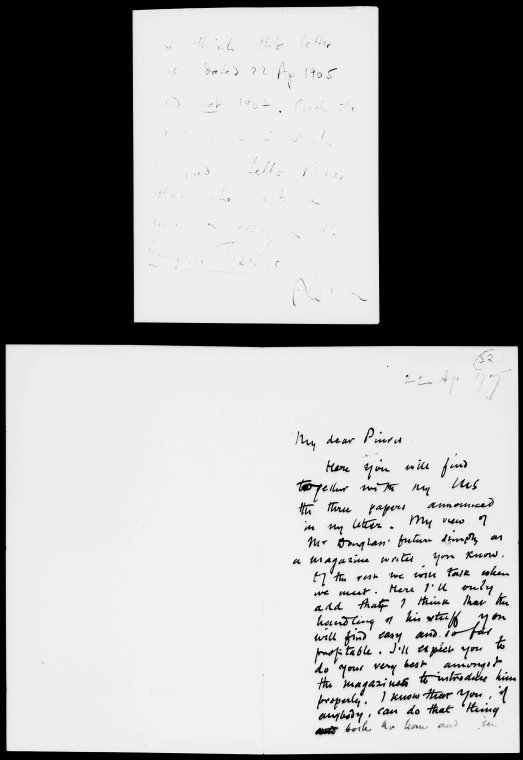 I think this letter
is dated 22 Ap 1905
and not 1907. Check the
in which
tells Pinker
that he wants to
on
Empire Tobacco
52
22 Ap 1905
My dear Pinker
Here you will find
together with my MS
the three papers announced
in my letter. My view of
Mr Douglas' future simply as
a magazine writer you know.
Of the rest we will talk when
we meet. Here I'll only
add that I think that the
handling of his stuff you
will find easy and so far
profitable. I'll expect you to
do your very best amongst
the magazines to introduce him
properly. I know that You, if
anybody, can do that thing
both at home and in